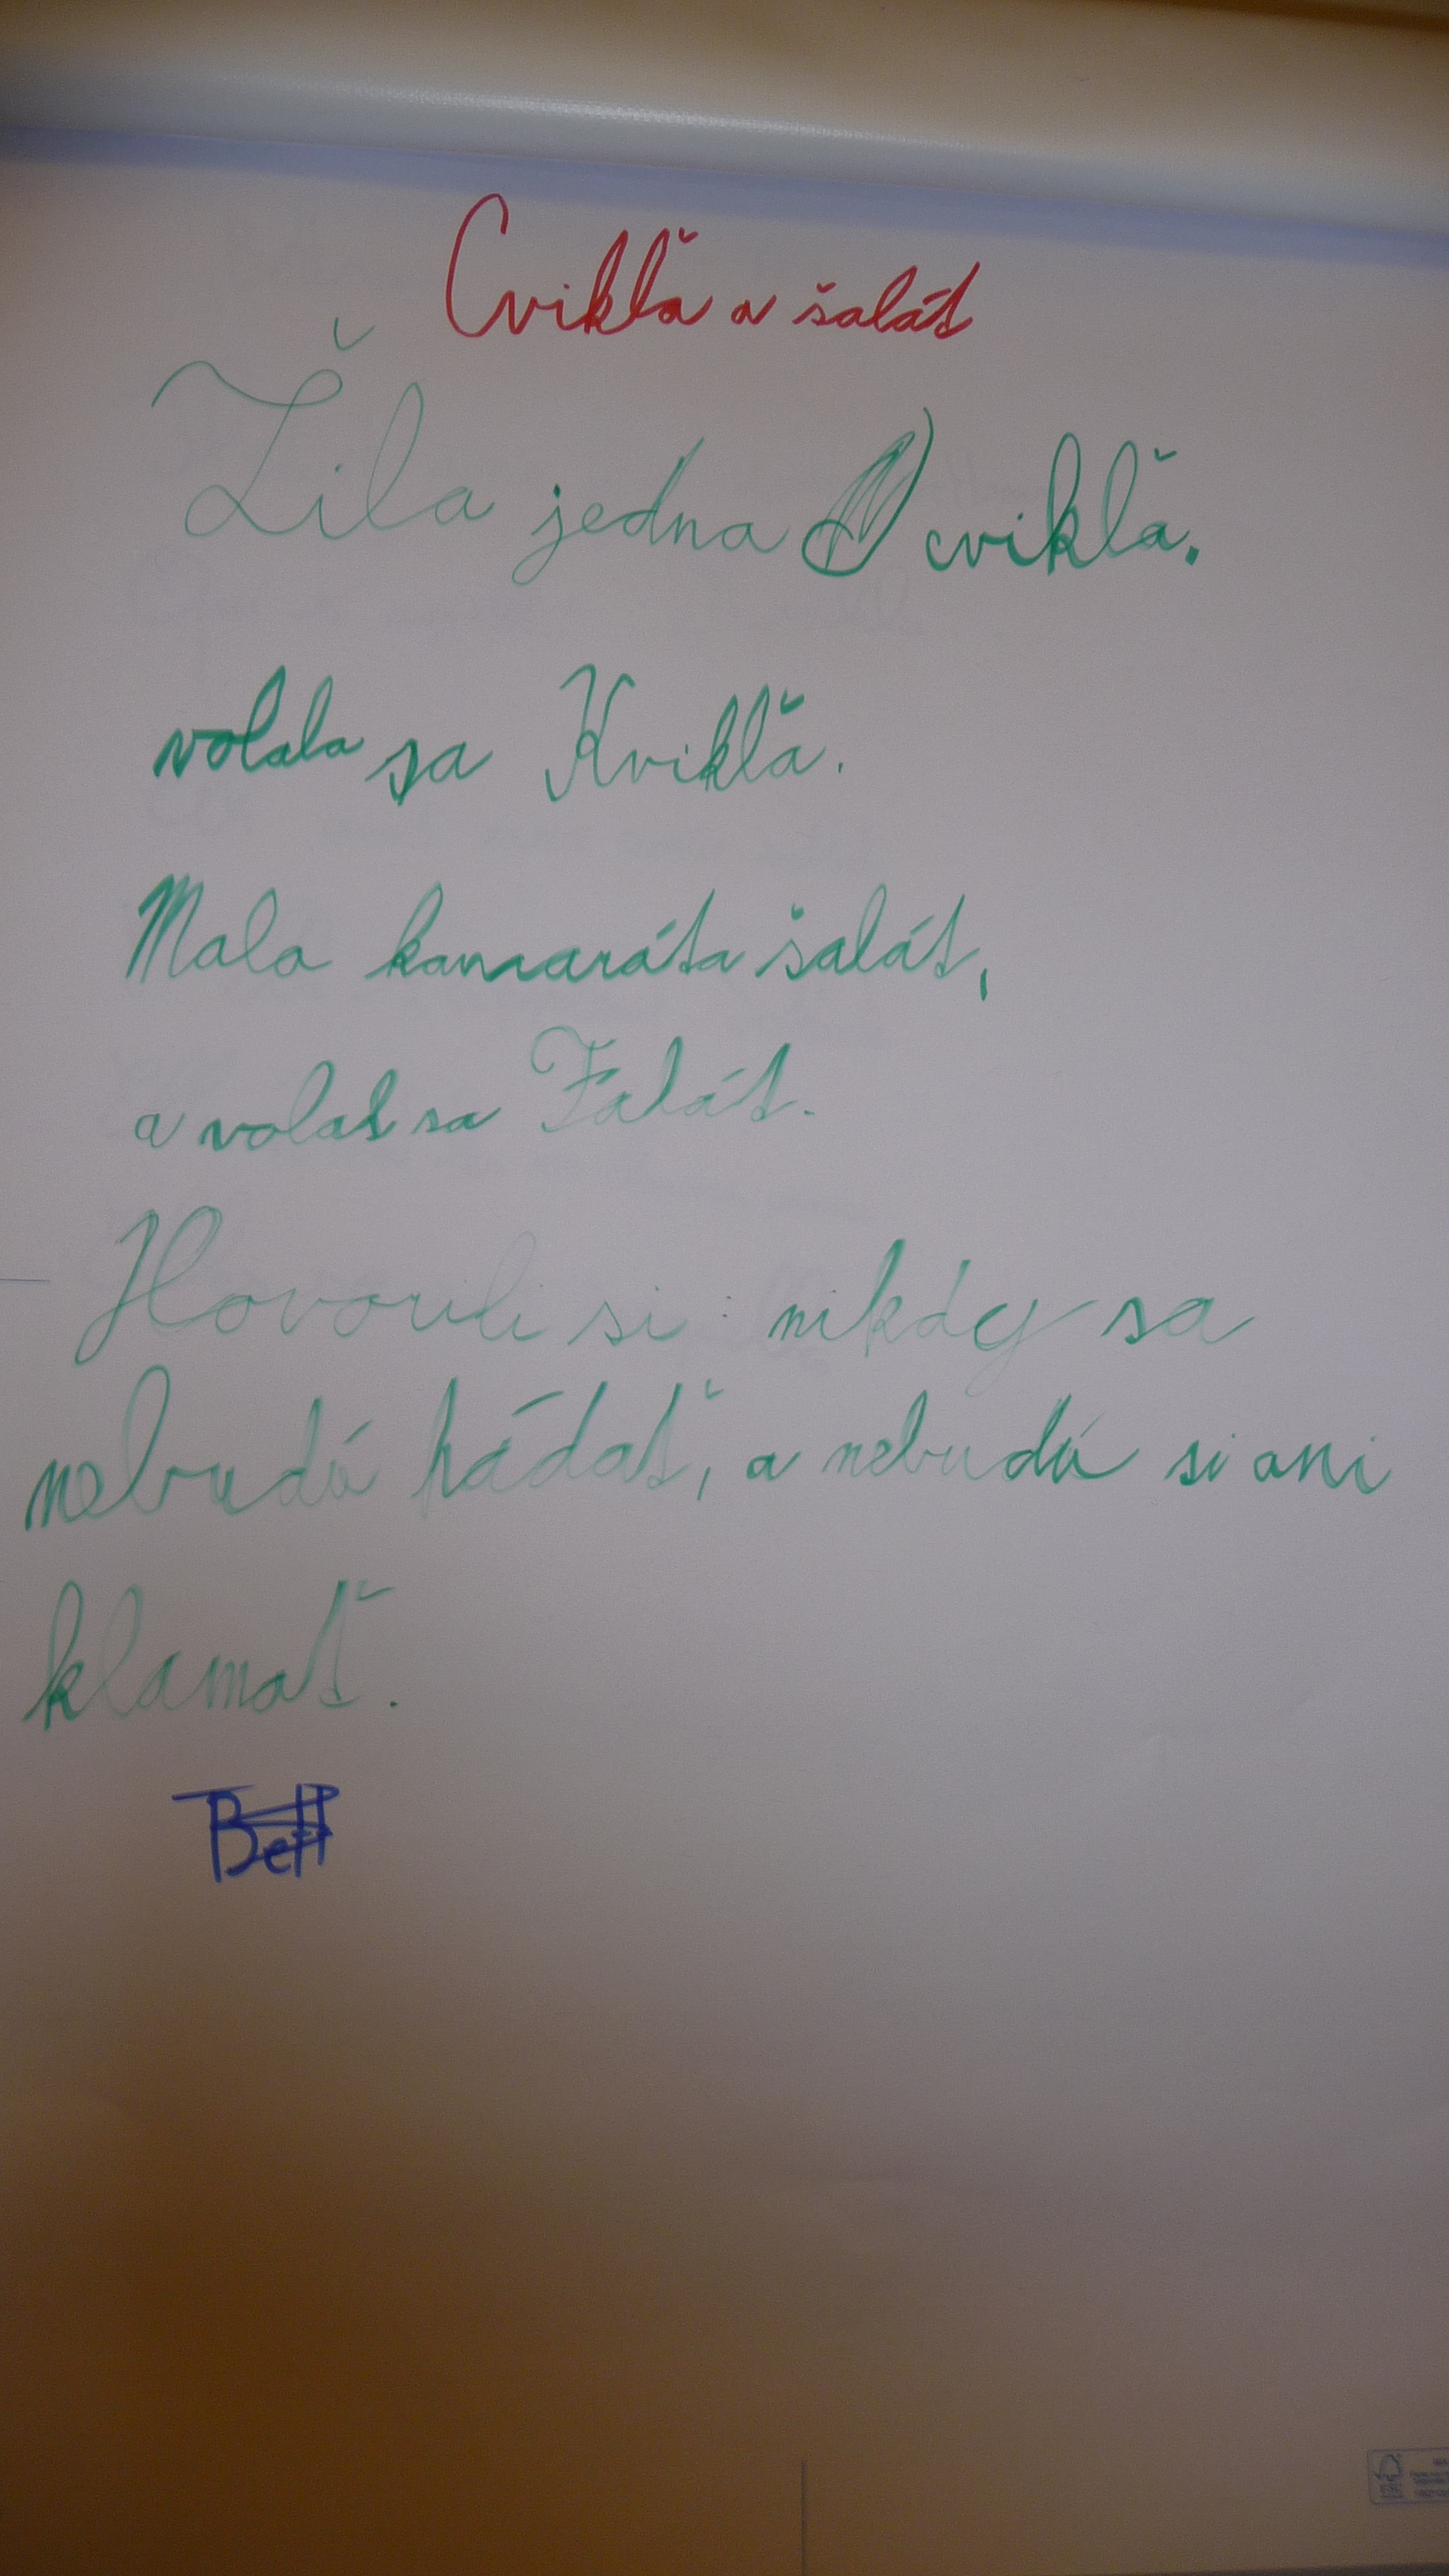 Cvikľa a šalát
Žila jedna cvikľa.
volala sa Kvikľa.
Mala kamaráta šalát,
a volal sa Falát.
Hovorili si: nikdy sa
nebudú hádať, a nebudú si ani
klamať.